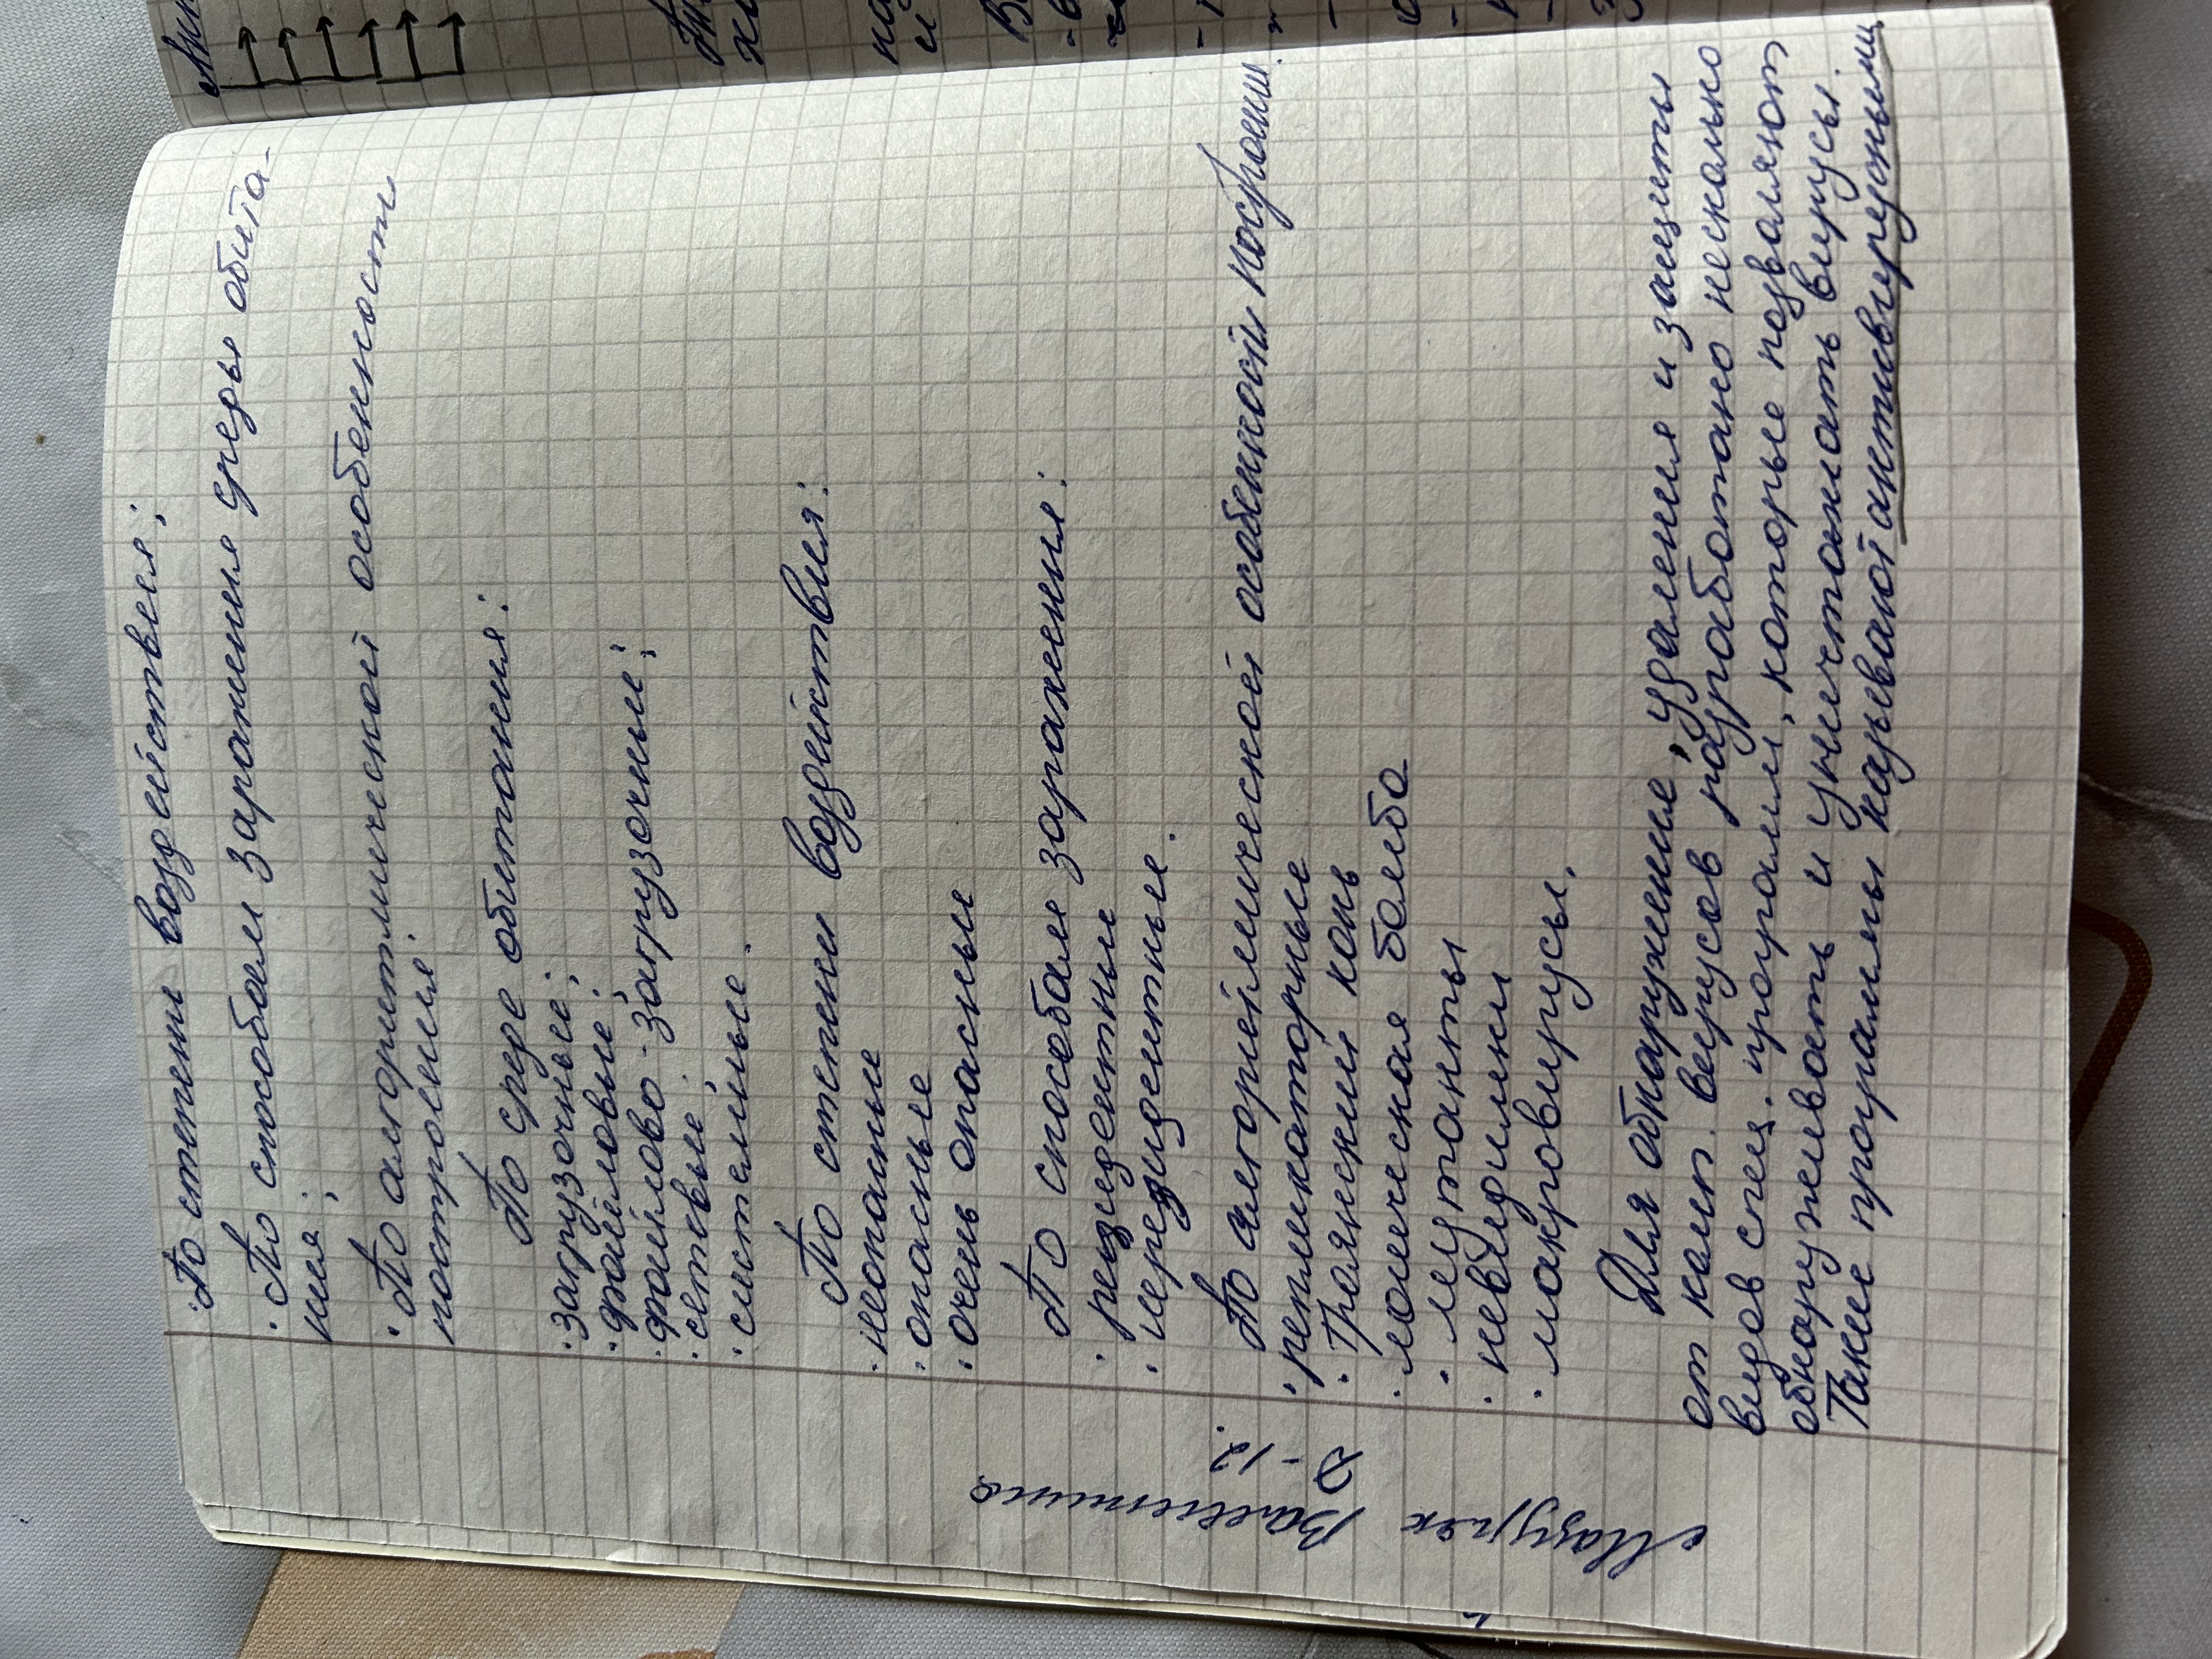 · По степени воздействия;
· По способам заражения среды обита-
ния;
· По алгоритмической особенност
построения.
По среде обитания:
· загрузочные;
· файловые;
· файлово-загрузочные;
· сетевые;
· системные.
По степени воздействия:
· неопасные
· опасные
· очень опасные
По способам заражения:
· резидентные
· нерезидентные.
По алгоритмической особенности построени.
· репликаторные
· троянский конь
· логическая бомба
· мутанты
· невидимки
· макровирусы.
Для обнаружение, удаления и защиты
от комп. вирусов разработано нескольно
видов спец. програми, которые позваляют
обнаруживать и уничтожать вирусы.
Такие програмы называют антивирусными
Валентина
-12.